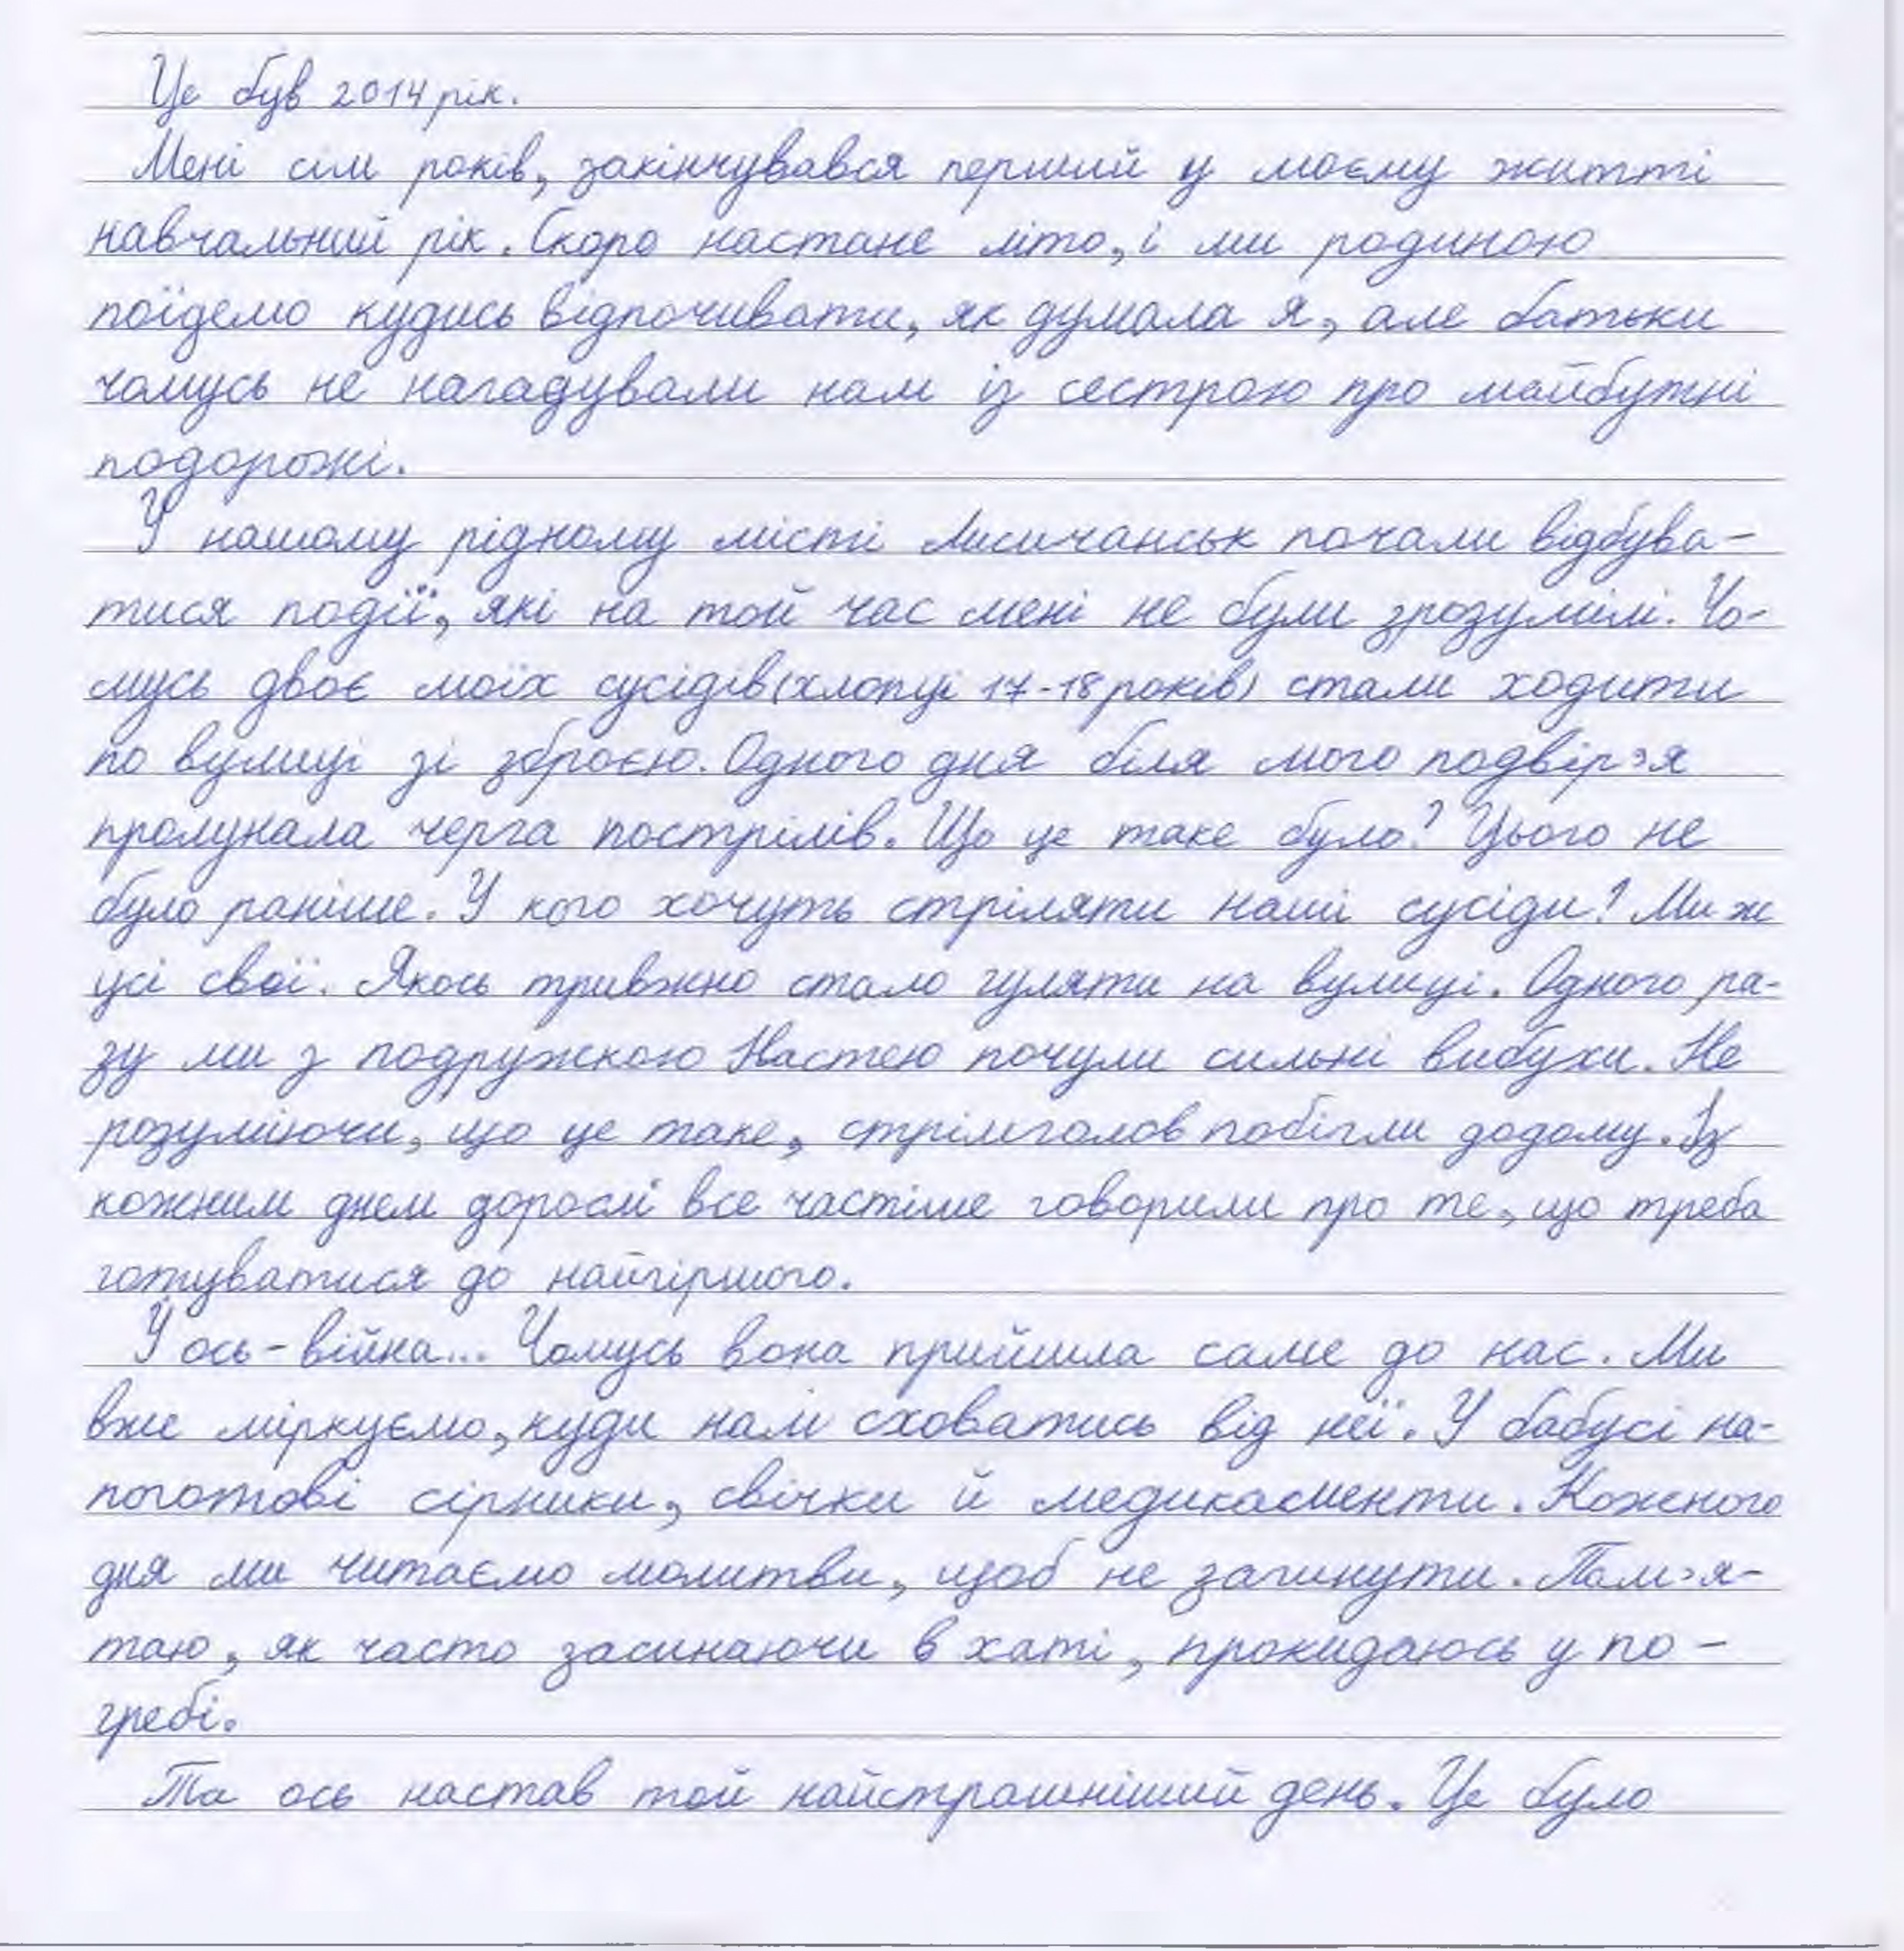 Це був 2014 рік.
Мені сім років, закінчувався перший у моєму житті
навчальний рік. Скоро настане літо, і ми родиною
поїдемо кудись відпочивати, як думала я, але батьки
чомусь не нагадували нам із сестрою про майбутні
подорожі.
У нашому рідному місті Лисичанськ почали відбува-
тися події, які на той час мені не були зрозумілі. Чо-
мусь двоє моїх сусідів (хлопці 17-18 років) стали ходити
по вулиці зі зброєю. Одного дня біля мого подвір'я
пролунала черга пострілів. Що це таке було? Цього не
було раніше. У кого хочуть стріляти наші сусіди? Ми ж
усі свої. Якось тривжно стало гуляти на вулиці. Одного ра-
зу ми з подружкою Настею почули сильні вибухи. Не
розуміючи, що це таке, стрімголов побігли додому. Із
кожним днем дорослі все частіше говорили про те, що треба
готуватися до найгіршого.
У ось - війна... Чомусь вона прийшла саме до нас. Ми
вже міркуємо, куди нам сховатись від неї. У бабусі на-
поготові сірники, свічки й медикаменти. Кожного
дня ми читаємо молитви, щоб не загинути. Пам'я-
таю, як часто засинаючи в хаті, прокидаюсь у по-
гребі.
Та ось настав той найстрашніший день. Це було